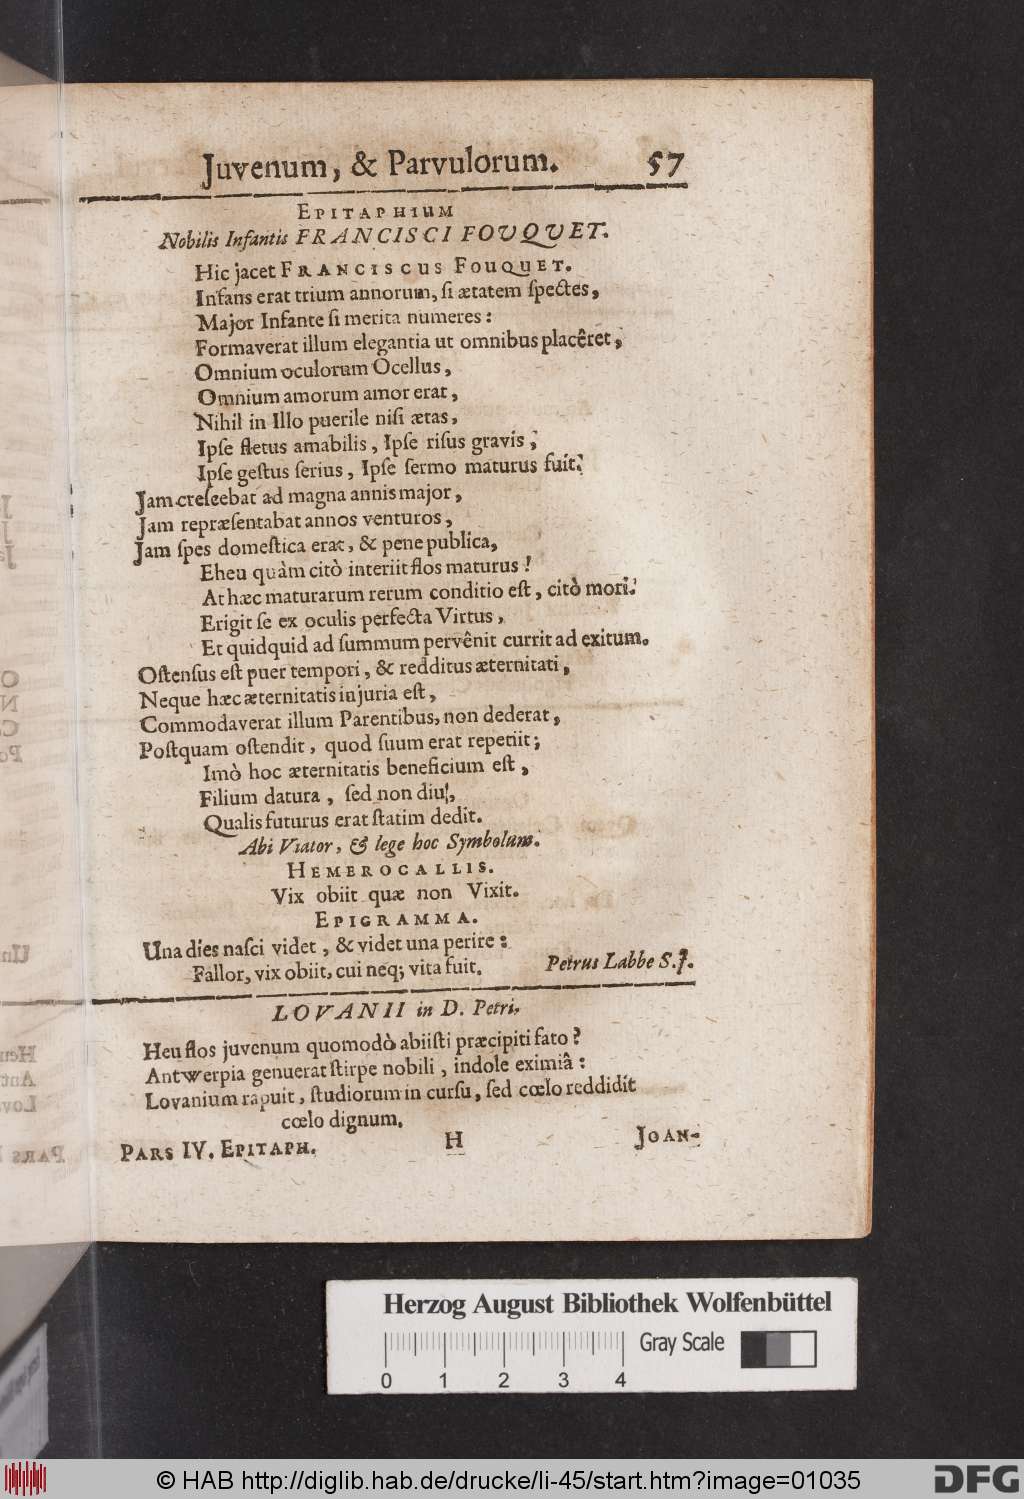 Juvenum, & Parvulorum. 57
EPITAPHIUM
Nobilis Infantis FRANCISCI FOUQUET.
Hic jacet FRANCISCUS FOUQUET.
Infans erat trium annorum, ſi ætatem ſpectes,
Major Infante ſi merita numeres:
Formaverat illum elegantia ut omnibus placêret,
Omnium oculorum Ocellus,
Omnium amorum amor erat,
Nihil in Illo puerile niſi ætas,
Ipſe fletus amabilis, Ipſe riſus gravis,
Ipſe geſtus ſerius, Ipſe ſermo maturus fuit.
Jam creſcebat ad magna annis major,
Jam repræſentabat annos venturos,
Jam ſpes domeſtica erat, & pene publica,
Eheu quàm citò interiit flos maturus!
At hæc maturarum rerum conditio eſt, citò mori.
Erigit ſe ex oculis perfecta Virtus,
Et quidquid ad ſummum pervênit currit ad exitum.
Oſtenſus eſt puer tempori, & redditus æternitati,
Neque hæc æternitatis injuria eſt,
Commodaverat illum Parentibus, non dederat,
Poſtquam oſtendit, quod ſuum erat repetiit;
Imò hoc æternitatis beneficium eſt,
Filium datura, ſed non diu,
Qualis futurus erat ſtatim dedit.
Abi Viator, & lege hoc Symbolum.
HEMEROCALLIS.
Vix obiit quæ non Vixit.
EPIGRAMMA.
Una dies naſci videt, & videt una perire:
Fallor, vix obiit, cui neq; vita fuit. Petrus Labbe S.J.
LOVANII in D. Petri.
Heu flos juvenum quomodò abiiſti præcipiti fato?
Antwerpia genuerat ſtirpe nobili, indole eximiâ:
Lovanium rapuit, ſtudiorum in curſu, ſed cœlo reddidit
cœlo dignum.
PARS IV. EPITAPH. H JOAN-
Herzog August Bibliothek Wolfenbüttel
Gray Scale
0 1 2 3 4
© HAB http://diglib.hab.de/drucke/li-45/start.htm?image=01035
DFG